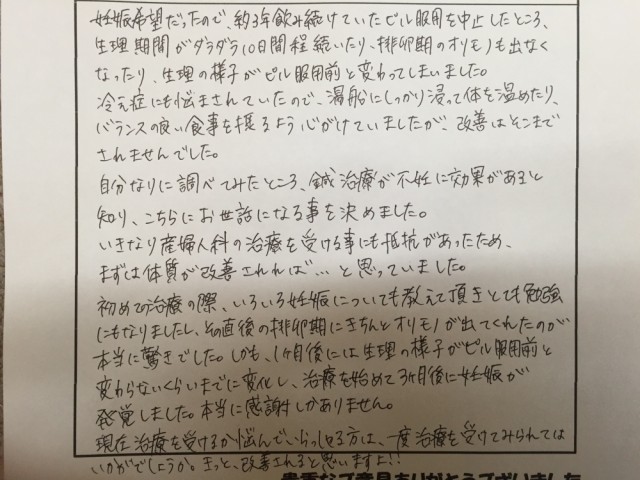 妊娠希望だったので、約3年飲み続けていたピル服用を中止したところ、
生理期間がダラダラ10日間程続いたり、排卵期のオリモノも出なく
なったり、生理の様子がピル服用前と変わってしまいました。
冷え症にも悩まされていたので、湯船にしっかり浸って体を温めたり、
バランスの良い食事を摂るよう心がけていましたが、改善はそこまで
されませんでした。
自分なりに調べてみたところ、鍼治療が不妊に効果があると
知り、こちらにお世話になる事を決めました。
いきなり産婦人科の治療を受ける事にも抵抗があったため、
まずは体質が改善されれば…と思っていました。
初めての治療の際、いろいろ妊娠についても教えて頂きとても勉強
にもなりましたし、その直後の排卵期にきちんとオリモノが出てくれたのが
本当に驚きでした。しかも、1ヶ月後には生理の様子がピル服用前と
変わらないくらいまでに変化し、治療を始めて3ヶ月後に妊娠が
発覚しました。本当に感謝しかありません。
現在治療を受けるか悩んでいらっしゃる方は、一度治療を受けてみられては
いかがでしょうか。きっと、改善されると思いますよ!!
貴重なご意見ありがとうございました